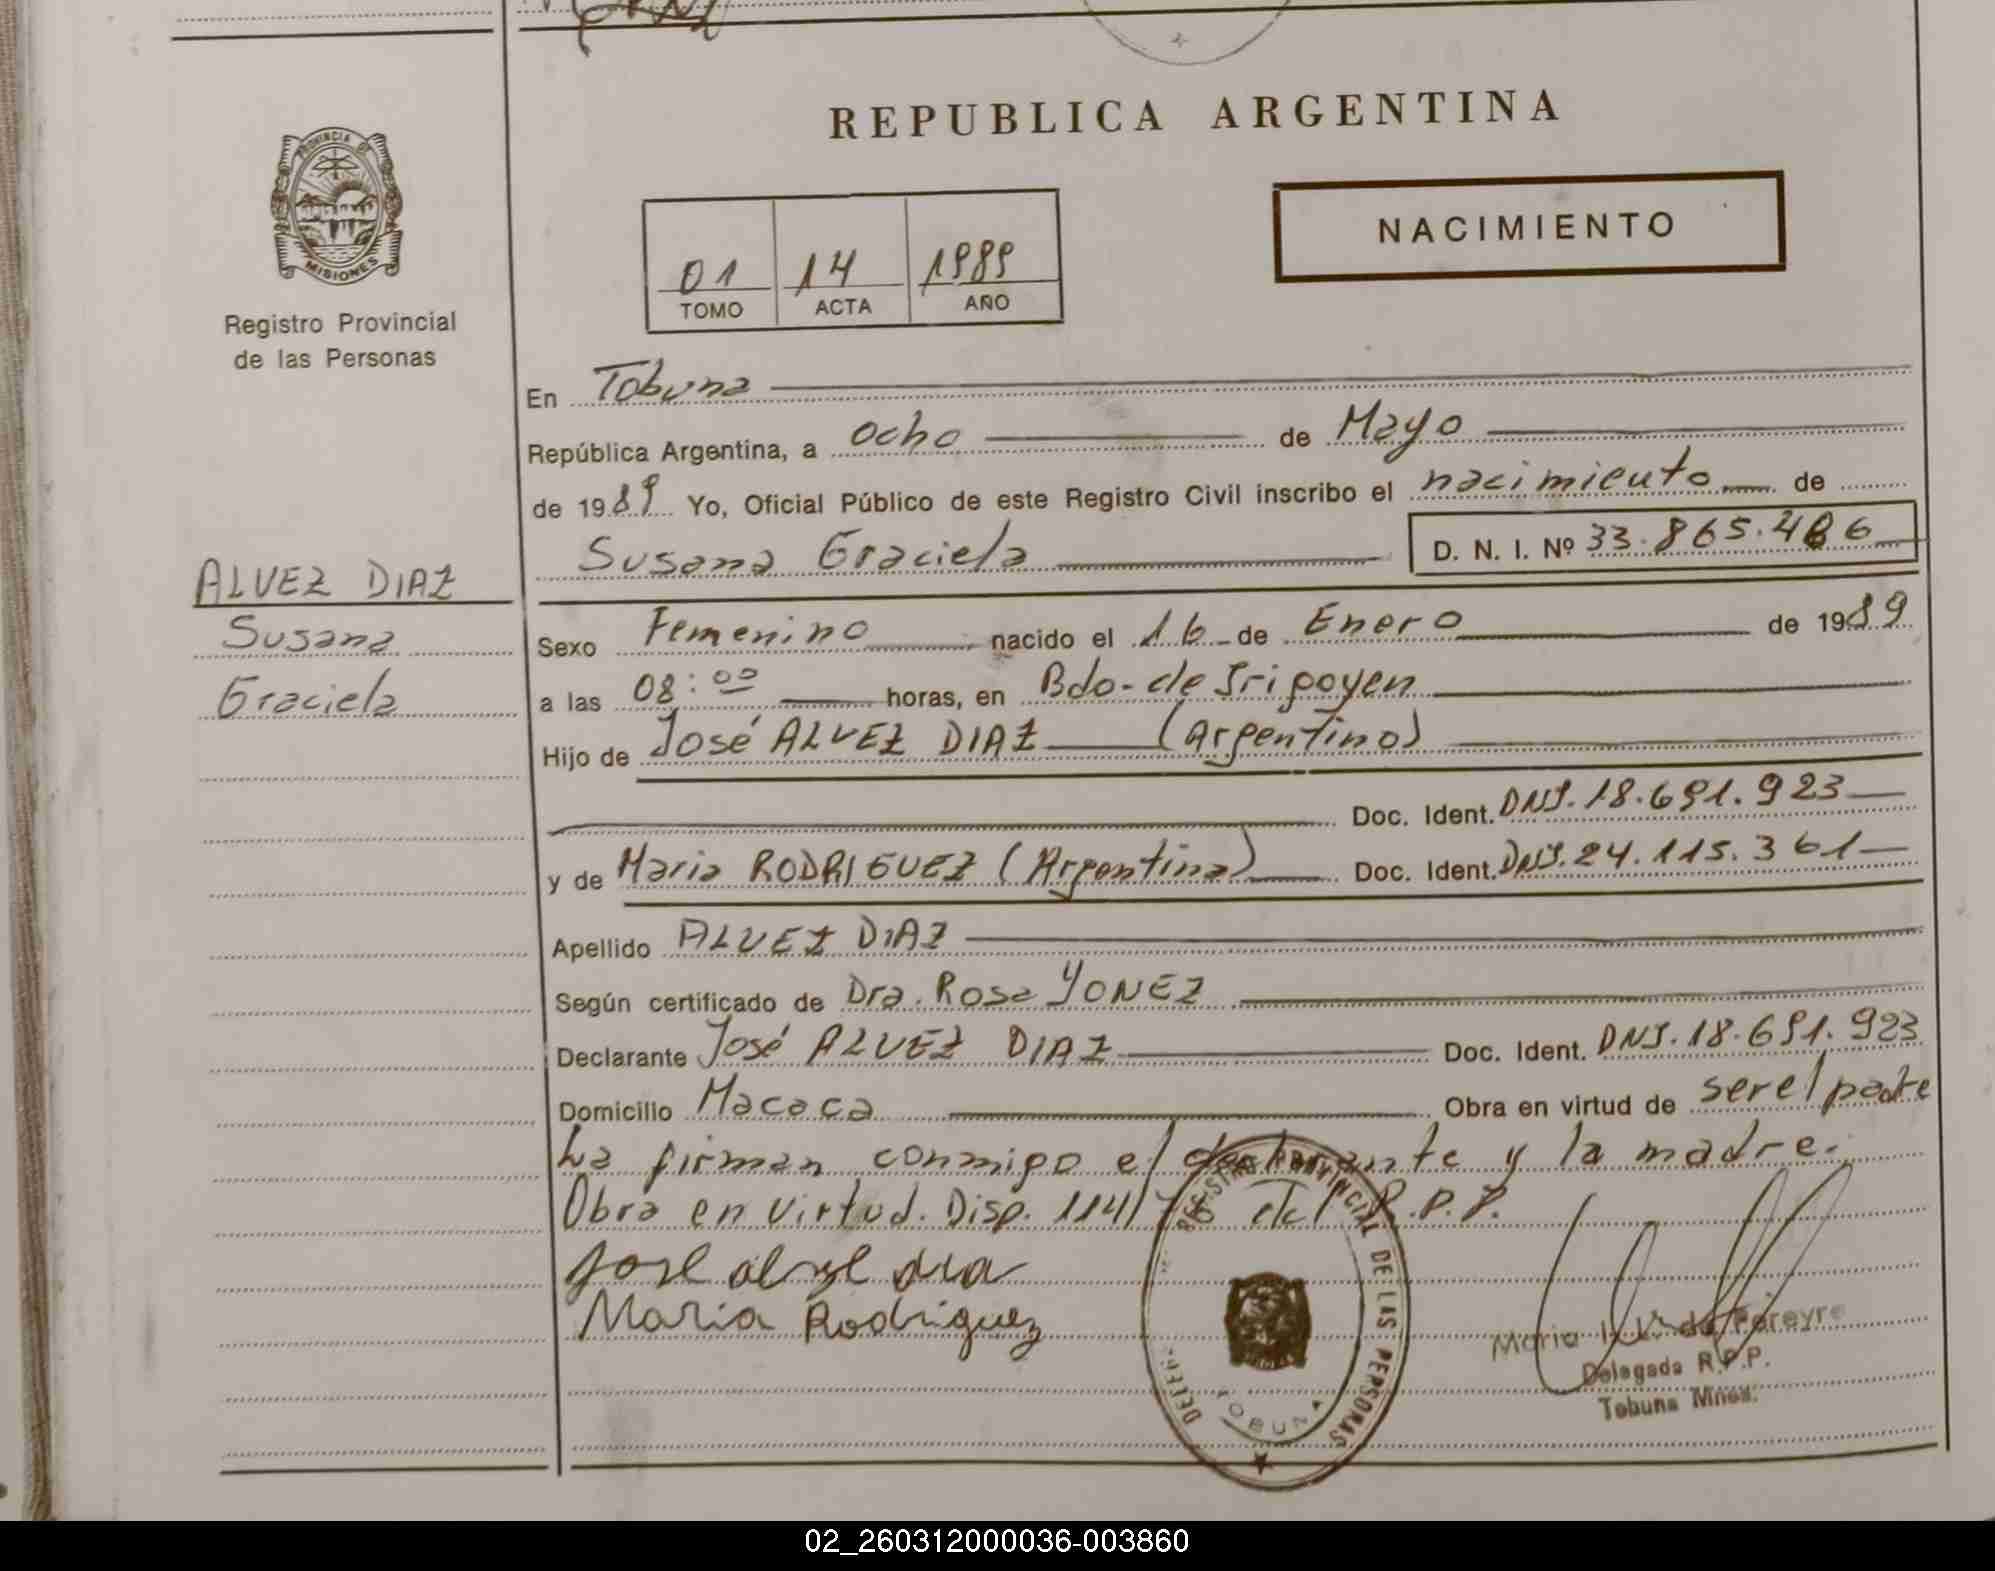 REPUBLICA ARGENTINA
PROVINCIA DE
MISIONES
Registro Provincial
de las Personas
01 14 1989
TOMO ACTA AÑO
NACIMIENTO
En Tobuna
República Argentina, a ocho de Mayo
de 1989 Yo, Oficial Público de este Registro Civil inscribo el nacimiento de
Susana Graciela D. N. I. Nº 33.865.486
ALVEZ DIAZ
Susana
Graciela
Sexo Femenino nacido el 16 de Enero de 1989
a las 08:00 horas, en Bdo. de Irigoyen
Hijo de José ALVEZ DIAZ (Argentino)
Doc. Ident. DNI. 18.691.923
y de Maria RODRIGUEZ (Argentina) Doc. Ident. DNI. 24.115.361
Apellido ALVEZ DIAZ
Según certificado de Dra. Rosa YONEZ
Declarante José ALVEZ DIAZ Doc. Ident. DNI. 18.691.923
Domicilio Macaca Obra en virtud de ser el padre
La firman conmigo el declarante y la madre.
Obra en virtud. Disp. 114/76 del R.P.P.
Jose alvez dia
Maria Rodriguez
REGISTRO PROVINCIAL DE LAS PERSONAS
TOBUNA
Maria de Pereyra
Delegada R.P.P.
Tobuna Mnes.
02_260312000036-003860